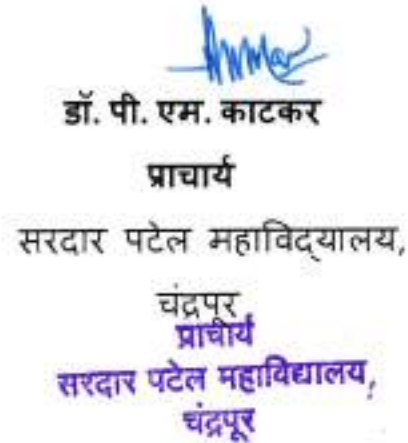 डॉ. पी. एम. काटकर
प्राचार्य
सरदार पटेल महाविद्यालय,
चंद्रपूर
प्राचार्य
सरदार पटेल महाविद्यालय,
चंद्रपूर